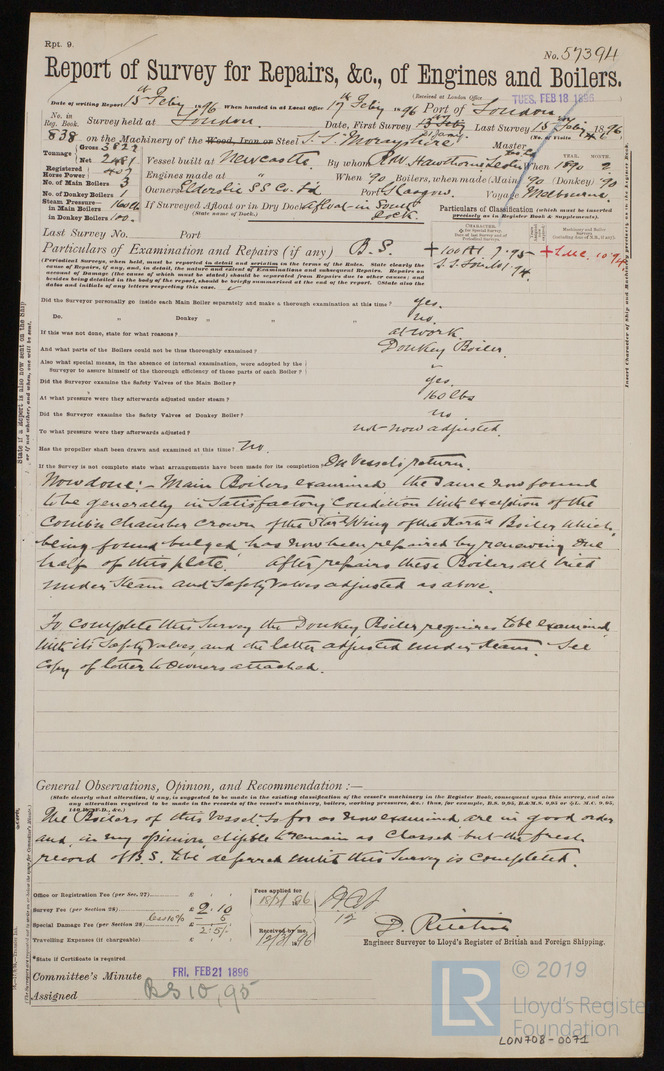 Rpt. 9.
No. 57394
Report of Survey for Repairs, &c., of Engines and Boilers.
(Received at London Office TUES. FEB 18 1896)
Date of writing Report 15th Feby 1896 When handed in at Local Office 17th Feby 1896 Port of London
No. in Reg. Book. Survey held at London Date, First Survey 31 Jany Last Survey 15 Feby 1896
(No. of Visits 6)
838 on the Machinery of the Wood, Iron or Steel S.S. Morayshire Master
Tonnage Gross 3822
Net 2481
Vessel built at Newcastle By whom R & W Hawthorn Leslie & Co Ld When 1890 2
YEAR. MONTH.
Registered Horse Power 407
Engines made at " When 90 Boilers, when made (Main) 90 (Donkey) 90
No. of Main Boilers 3
No. of Donkey Boilers 1
Owners Elderslie S.S. Co. Ld Port Glasgow. Voyage Melbourne
Steam Pressure in Main Boilers 160 lbs
in Donkey Boilers 100
If Surveyed Afloat or in Dry Dock afloat in South Dock.
(State name of Dock.)
Particulars of Classification (which must be inserted precisely as in Register Book & Supplements).
Last Survey No. Port
Particulars of Examination and Repairs (if any) B.S.
+ 100 A1. 7.95
+ L.M.C. 10.94
(Periodical Surveys, when held, must be reported in detail and seriatim in the terms of the Rules. State clearly the cause of Repairs, if any, and, in detail, the nature and extent of Examinations and subsequent Repairs. Repairs on account of Damage (the cause of which must be stated) should be separated from Repairs due to other causes; and besides being detailed in the body of the report, should be briefly summarised at the end of the report. State also the dates and initials of any letters respecting this case.
Did the Surveyor personally go inside each Main Boiler separately and make a thorough examination at this time? yes.
Do. " Donkey " " " no.
If this was not done, state for what reasons? at work.
And what parts of the Boilers could not be thus thoroughly examined? Donkey Boiler.
Also what special means, in the absence of internal examination, were adopted by the Surveyor to assure himself of the thorough efficiency of those parts of each Boiler?
Did the Surveyor examine the Safety Valves of the Main Boiler? yes.
At what pressure were they afterwards adjusted under steam? 160 lbs
Did the Surveyor examine the Safety Valves of Donkey Boiler? no
To what pressure were they afterwards adjusted? not now adjusted.
Has the propeller shaft been drawn and examined at this time? No.
If the Survey is not complete state what arrangements have been made for its completion On Vessels return.
Now done:- Main Boilers examined the same now found
to be generally in satisfactory condition with exception of the
Combn Chamber crown of the Star'd Wing of the Starb'd Boiler which,
being found bulged has now been repaired by renewing one
half of this plate. After repairs these Boilers all tried
under steam and Safety Valves adjusted as above.
To complete this survey the Donkey Boiler requires to be examined
with its Safety Valves, and the latter adjusted under steam. See
Copy of letter to Owners attached.
General Observations, Opinion, and Recommendation :—
(State clearly what alteration, if any, is suggested to be made in the existing classification of the vessel's machinery in the Register Book, consequent upon this survey, and also any alteration required to be made in the records of the vessel's machinery, boilers, working pressures, &c.
The Boilers of this Vessel so far as now examined are in good order
and, in my opinion, eligible to remain as Classed but the fresh
record of B.S. to be deferred until this Survey is completed.
Office or Registration Fee (per Sec. 27) £
Survey Fee (per Section 28) £ 2 : 10
Special Damage Fee (per Section 28) less 10% £ 5
2 : 5/-
Travelling Expenses (if chargeable) £
Fees applied for 18/2/96
Received by me, 12/3/96
D. Ritchie
Engineer Surveyor to Lloyd's Register of British and Foreign Shipping.
*State if Certificate is required
Committee's Minute FRI. FEB 21 1896
Assigned BS 10,95
LR
© 2019
Lloyd's Register
Foundation
LON708-0071